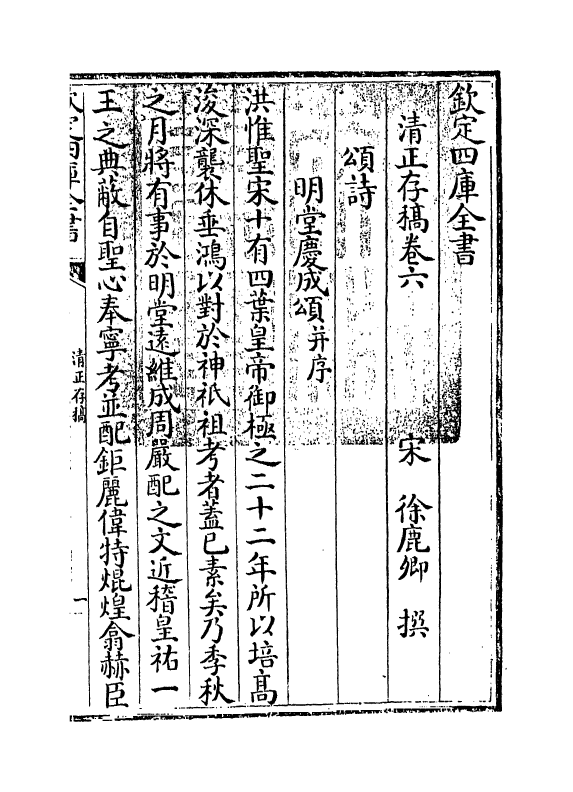 欽定四庫全書
清正存稿卷六
宋 徐鹿卿 撰
頌詩
明堂慶成頌并序
洪惟聖宋十有四葉皇帝御極之二十二年所以培髙
浚深襲休垂鴻以對於神祇祖考者蓋已素矣乃季秋
之月將有事於明堂遠維成周嚴配之文近稽皇祐一
王之典蔽自聖心奉寧考並配鉅麗偉特焜煌翕赫臣
欽定四庫全書
清正存稿
一